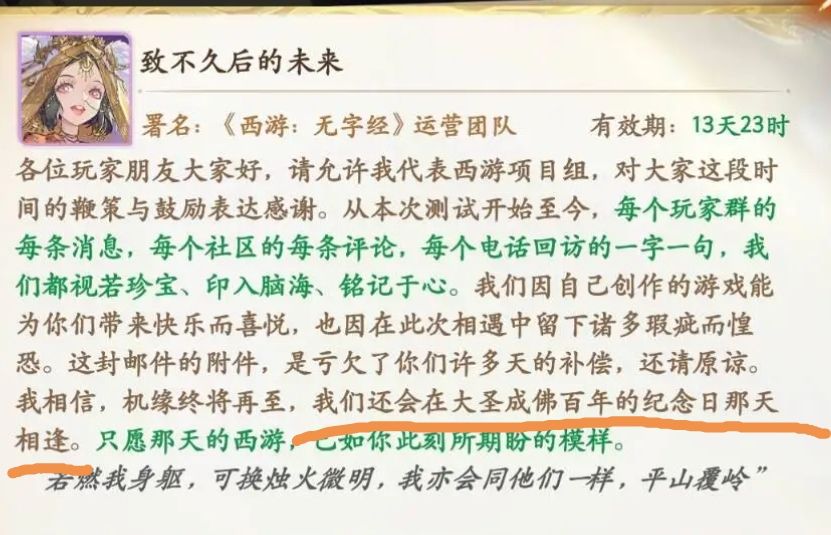 致不久后的未来
署名：《西游：无字经》运营团队 有效期：13天23时
各位玩家朋友大家好，请允许我代表西游项目组，对大家这段时
间的鞭策与鼓励表达感谢。从本次测试开始至今，每个玩家群的
每条消息，每个社区的每条评论，每个电话回访的一字一句，我
们都视若珍宝、印入脑海、铭记于心。我们因自己创作的游戏能
为你们带来快乐而喜悦，也因在此次相遇中留下诸多瑕疵而惶
恐。这封邮件的附件，是亏欠了你们许多天的补偿，还请原谅。
我相信，机缘终将再至，我们还会在大圣成佛百年的纪念日那天
相逢。只愿那天的西游，已如你此刻所期盼的模样。
若燃我身躯，可换烛火微明，我亦会同他们一样，平山覆岭”